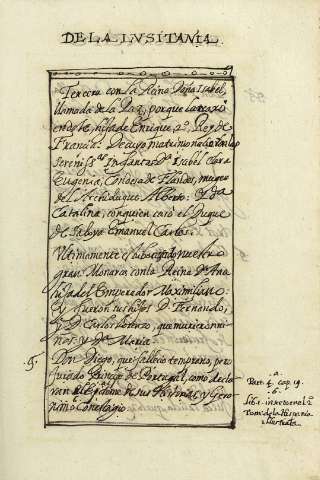 DE LA LUSITANIA.
Tercera con la Reina Doña Isabel,
llamada de la Paz, porque la traxo
este, hija de Enrique, 2º. Rey de
Francia. De cuyo matrimonio
sereniss.as Infantas Dª Isabel Clara
Eugenia, Condesa de Flandes, muger
del Archiduque Alberto: Y Dª
Catalina, con quien casó el Duque
de Saboya Emanuel Carlos.
Ultimamente
gran Monarca con la Reina Dª Ana
hija del Emperador Maximiliano:
y fueron sus hijos D. Fernando,
y D. Carlos Lorenzo, que murieron ni
nos y Dª Maria.
Don Diego, que fallecio temprano, por
jurado Principe de Portugal, como
en sus Historias, y Gero
nimo Conestagio.
Part. 4. cap. 19.
b.
Lib. 1.
Tom. de la Hispania
illustrata.